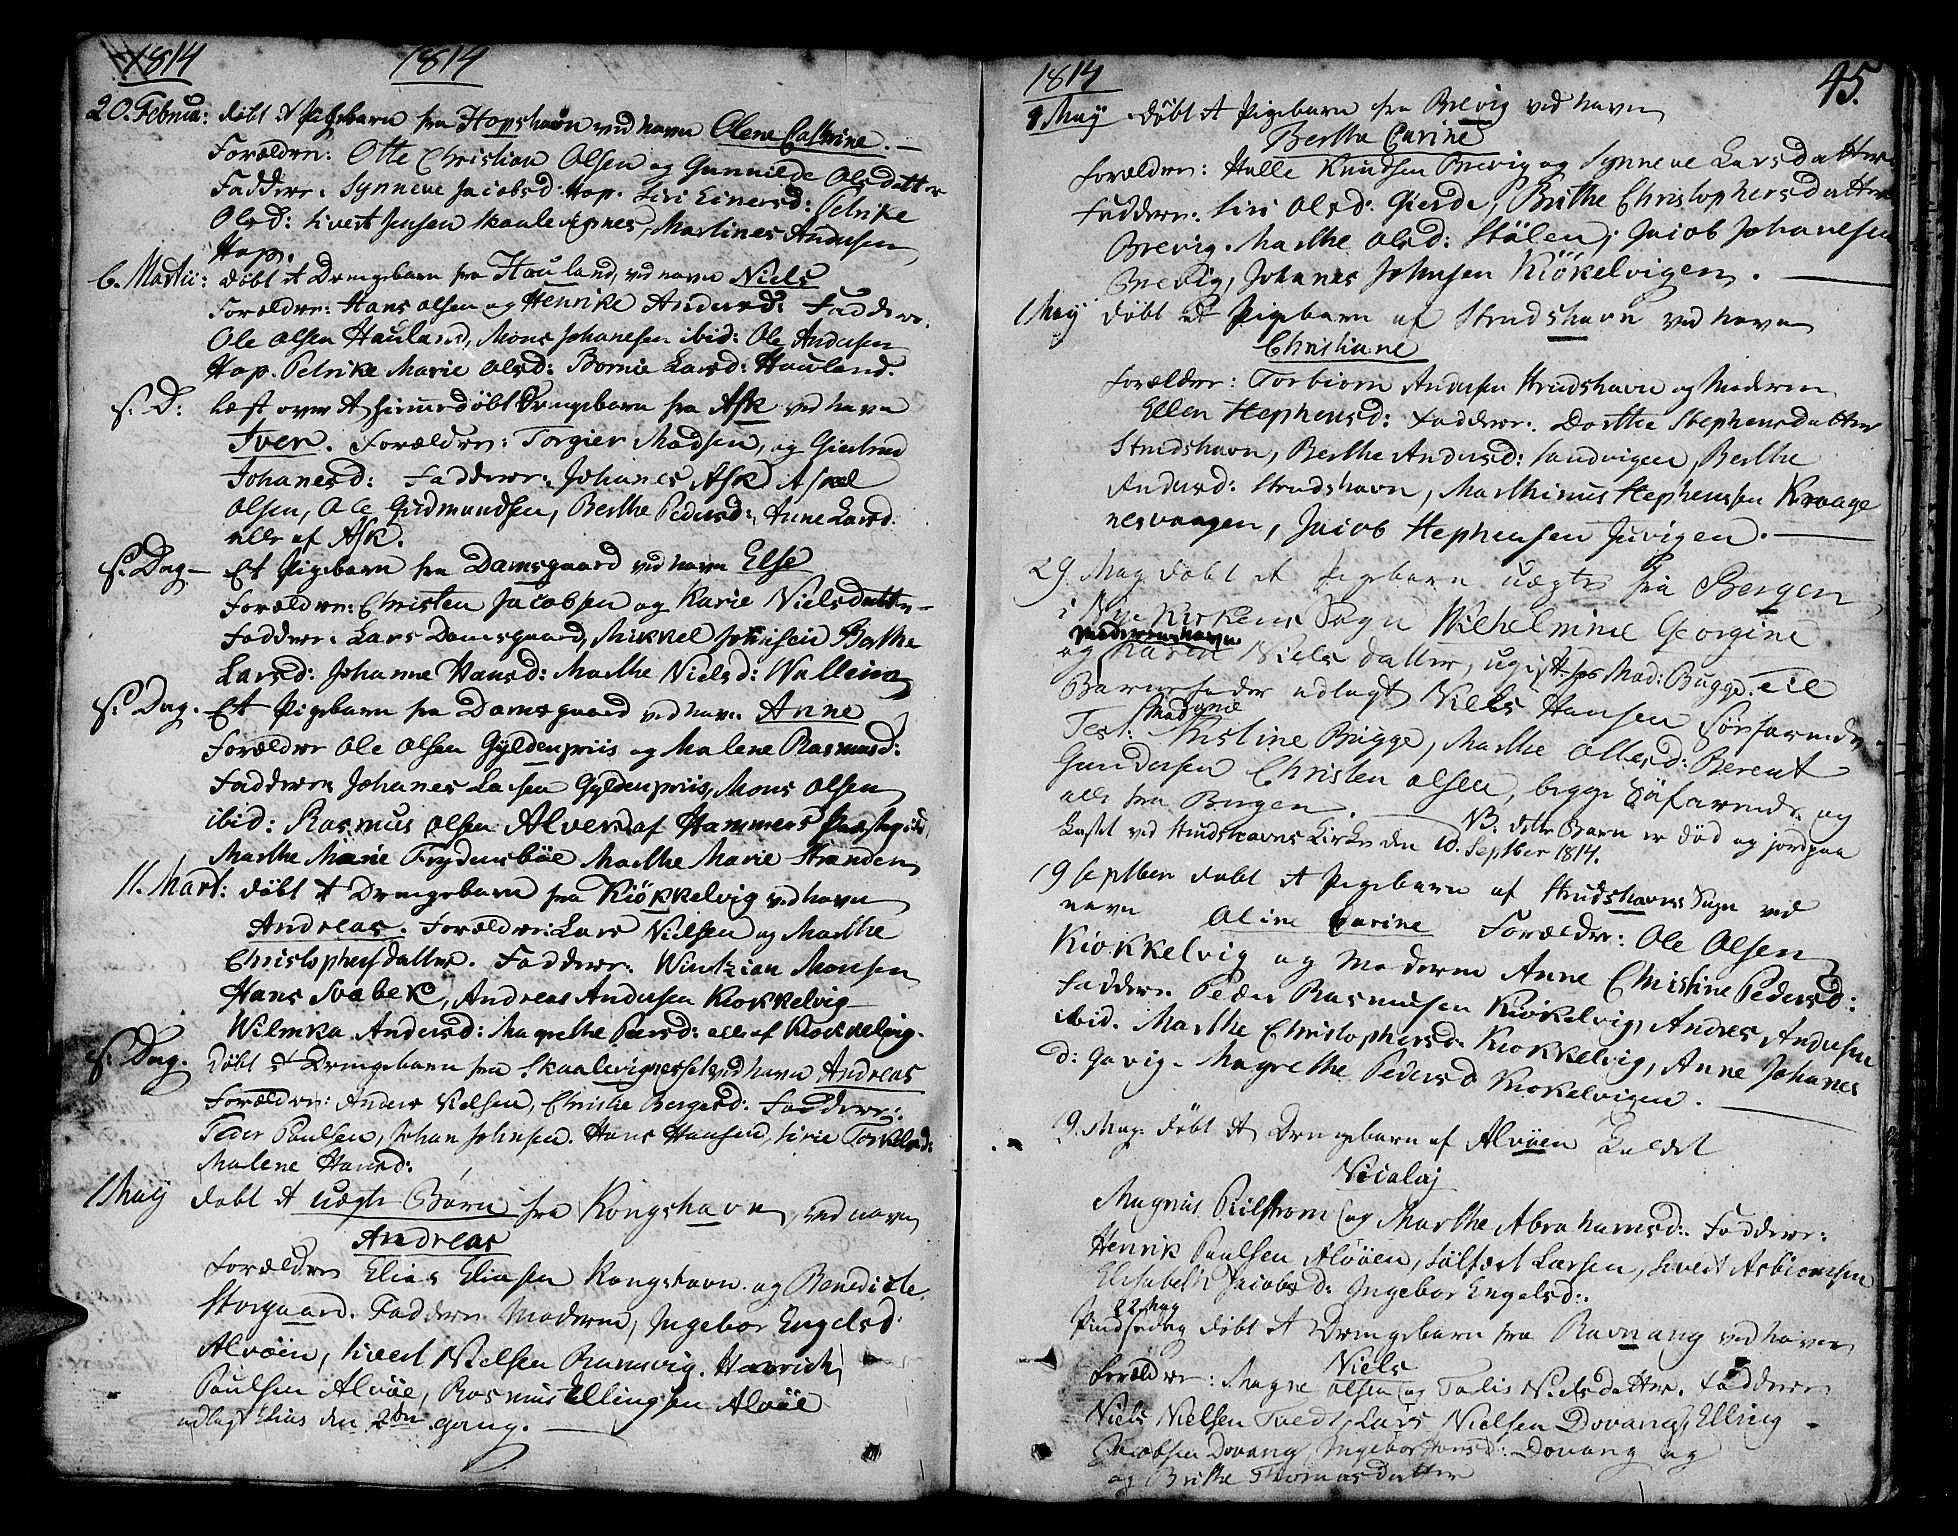 1814 1814
20. Februa: døbt et Pigebarn fra Hopshavn ved navn Olene Cathrine. —
Forældre: Otte Christian Olsen og Gunnilde Olsdatter
Faddere: Synneve Jacobsd: Hop. Siri Einersd: Petrike
Olsd: Sivert Jensen Skaalevignes, Martines Andersen
Hop.
6. Martii: døbt et Drengebarn fra Hauland, ved navn Niels
Forældre: Hans Olsen og Henrike Andersd: Faddere.
Ole Olsen Hauland, Mons Johanesen ibid: Ole Andersen
Hop. Petrike Marie Olsd: Larsd: Hauland.
S. D: Læst over et hiemmedøbt Drengebarn fra Ask ved navn
Iver. Forældre: Torgier Madsen, og Giertrud
Johanesd: Faddere: Johanes Ask Askel
Olsen, Ole Gudmundsen, Berthe Pedersd:, Anne Larsd.
alle af Ask.
S. Dag — Et Pigebarn fra Damsgaard ved navn Else
Forældre: Christen Jacobsen og Karie Nielsdatter —
Faddere: Lars Damsgaard, Mikkel Johnsen Berthe
Larsd: Johanne Hansd: Marthe Nielsd:
S. Dag. Et Pigebarn fra Damsgaard ved navn Anne
Forældre Ole Olsen Gyldenpriis og Malene Rasmusd:
Faddere Johanes Larsen Gyldenpriis, Mons Olsen
ibid: Rasmus Olsen Alveren af Hammers
Marthe Marie Frydensbøe Marthe Marie Stranden
11. Mart: døbt et Drengebarn fra Kiøkkelvig ved navn
Andreas. Forældre: Lars Nielsen og Marthe
Christophersdatter. Faddere: Monsen
Hans Svabek, Andreas Andersen Kiokkelvig
Wilmka Andersd: Magrethe Peersd: alle af Kiockkelvig.
S. Dag. døbt et Drengebarn fra Skaalevignesset ved navn Andreas
Forældre: Anders Nielsen, Christie Bergesd: Faddere:
Peder Paulsen, Johan Johnsen. Hans Hansen, Sirie Torkelsd:
Malene Hansd:
1 May døbt et uægte Børn fra Kongshavn, ved navn
Andreas
Forældre Elias Eliasen Kongshavn og Benedicte
Storgaard. Faddere Moderen, Ingebor Engelsd:
Alvøen, Sivert Nielsen Ramsvig. Henrich
Paulsen Alvøe, Rasmus Ellingsen Alvøe
udlagt Elias den 2den gang. —
1814 45.
1 May døbt et Pigebarn fra Brevig ved navn
Bertha Carine
Forældre: Halle Knudsen Brevig og Synneve Larsdatter
Faddere: Siri Olsd: Gierde, Brithe Christophersdatter
Brevig. Marthe Olsd: Stølen, Jacob Johanesen
Brevig, Johanes Johnsen Kiøkelvigen. —
1 May døbt et Pigebarn af Strudshavn ved navn
Christiane
Forældre: Torbiørn Andersen Strudshavn og Moderen
Ellen Stephensd: Faddere: Dorthe Stephensdatter
Strudshavn, Berthe Andersd: Sandvigen, Berthe
Andersd: Strudshavn, Marthinus Stephensen Kraage
nesvaagen, Jacob Stephensen Juvigen. —
29 May døbt et Pigebarn uægte fra Bergen
i Nye Kirkens Sogn Wilhelmine Georgine
Moderens navn
og Karen Nielsdatter, ugift hos Mad: Bugge. Til
Barnefader udlagt Niels Hansen Søefarende
Test: Madame Kristine Bugge, Marthe Ollesd: Berent
Gundersen Christen Olsen, begge Søfarende og
alle fra Bergen. NB. dette Barn er død og jordpaa
kastet ved Strudshavns Kirke den 10. Septber 1814.
19 Septber døbt et Pigebarn af Strudshavns Sogn ved
navn Oline Carine Forældre: Ole Olsen
Kiokkelvig og Moderen Anne Christine Pedersd:
Faddere Peder Rasmusen Kiøkelvig, Andres Andersen
ibid. Marthe Christophersd: Kiokkelvig, Anne Johanes
d: Gavig. Magrethe Pedersd Kiokelvigen. —
9. May. døbt et Drengebarn af Alvøen kaldet
Nicolaj
Magnus Pilstrom og Marthe Abrahamsd: Faddere:
Henrik Paulsen Alvøen, Larsen, Sivert Asbiornsen
Elisabeth Jacobsd: Ingebor Engelsd:.
22 May
Pindsedag døbt et Drengebarn fra Ravnang ved navn
Niels
Forældre: Magne Olsen og Talis Nielsdatter. Faddere
Niels Nielsen Tvedt, Lars Nielsen Dovang, Elling
Jacobsen Dovang Ingebor Dovang og
og Brithe Thomasdatter